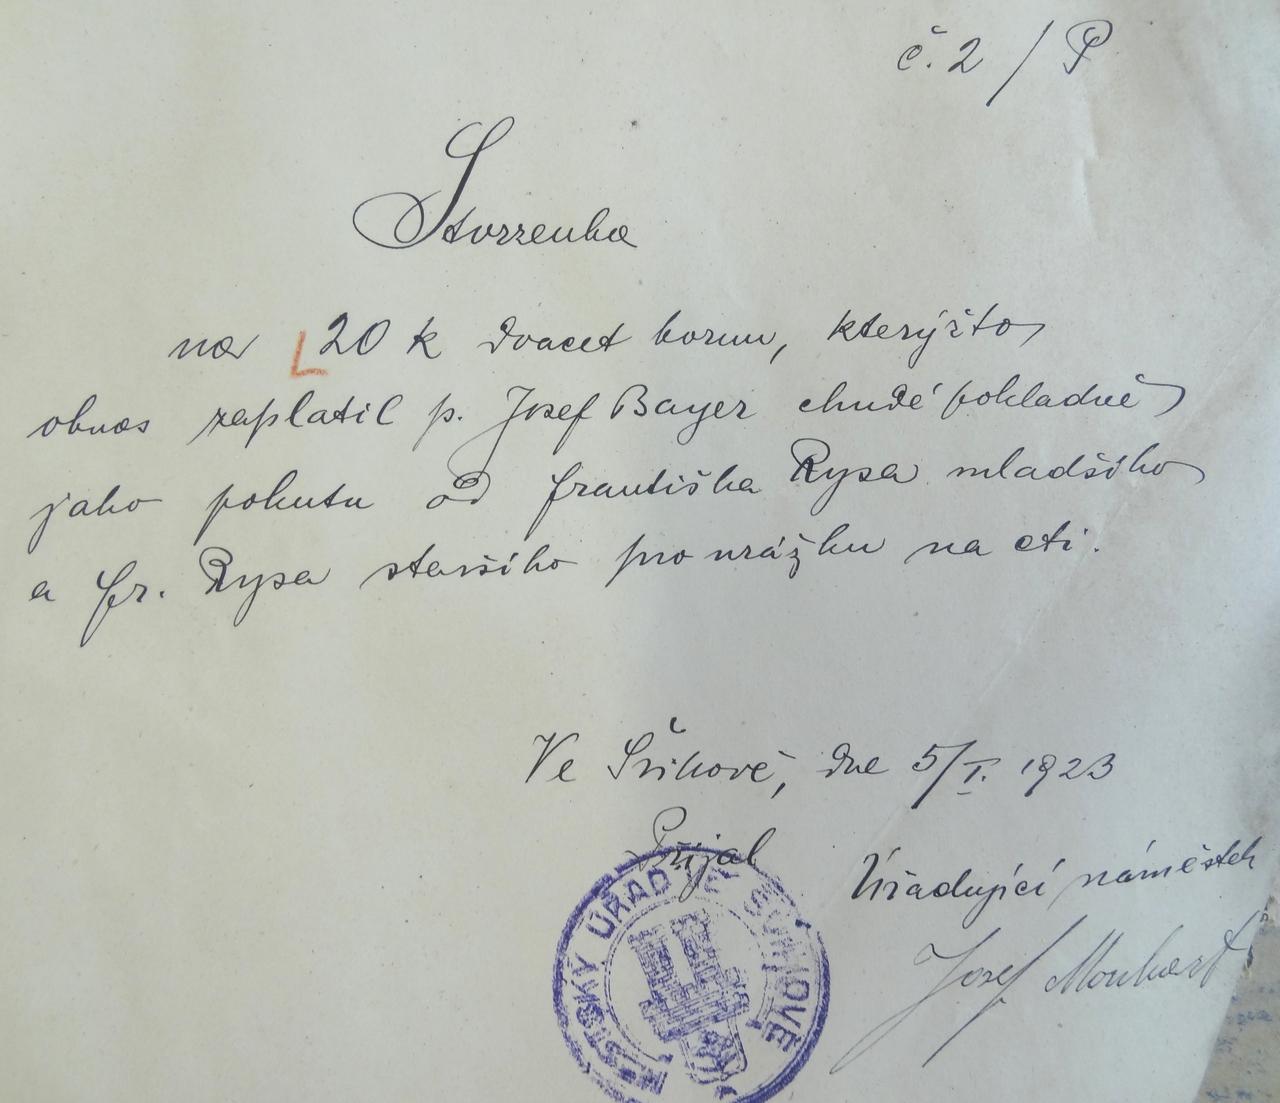 č. 2 / P
Stvrzenka
na 20 k dvacet korun, kterýžto
obnos zaplatil p. Josef Bayer chudé pokladně
jako pokutu od Františka Rysa mladšího
a Fr. Rysa staršího pro urážku na cti.
Ve Svihově, dne 5/I. 1923
Přijal
Úřadující náměstek
Josef
MĚSTSKÝ ÚŘAD VE ŠVIHOVĚ